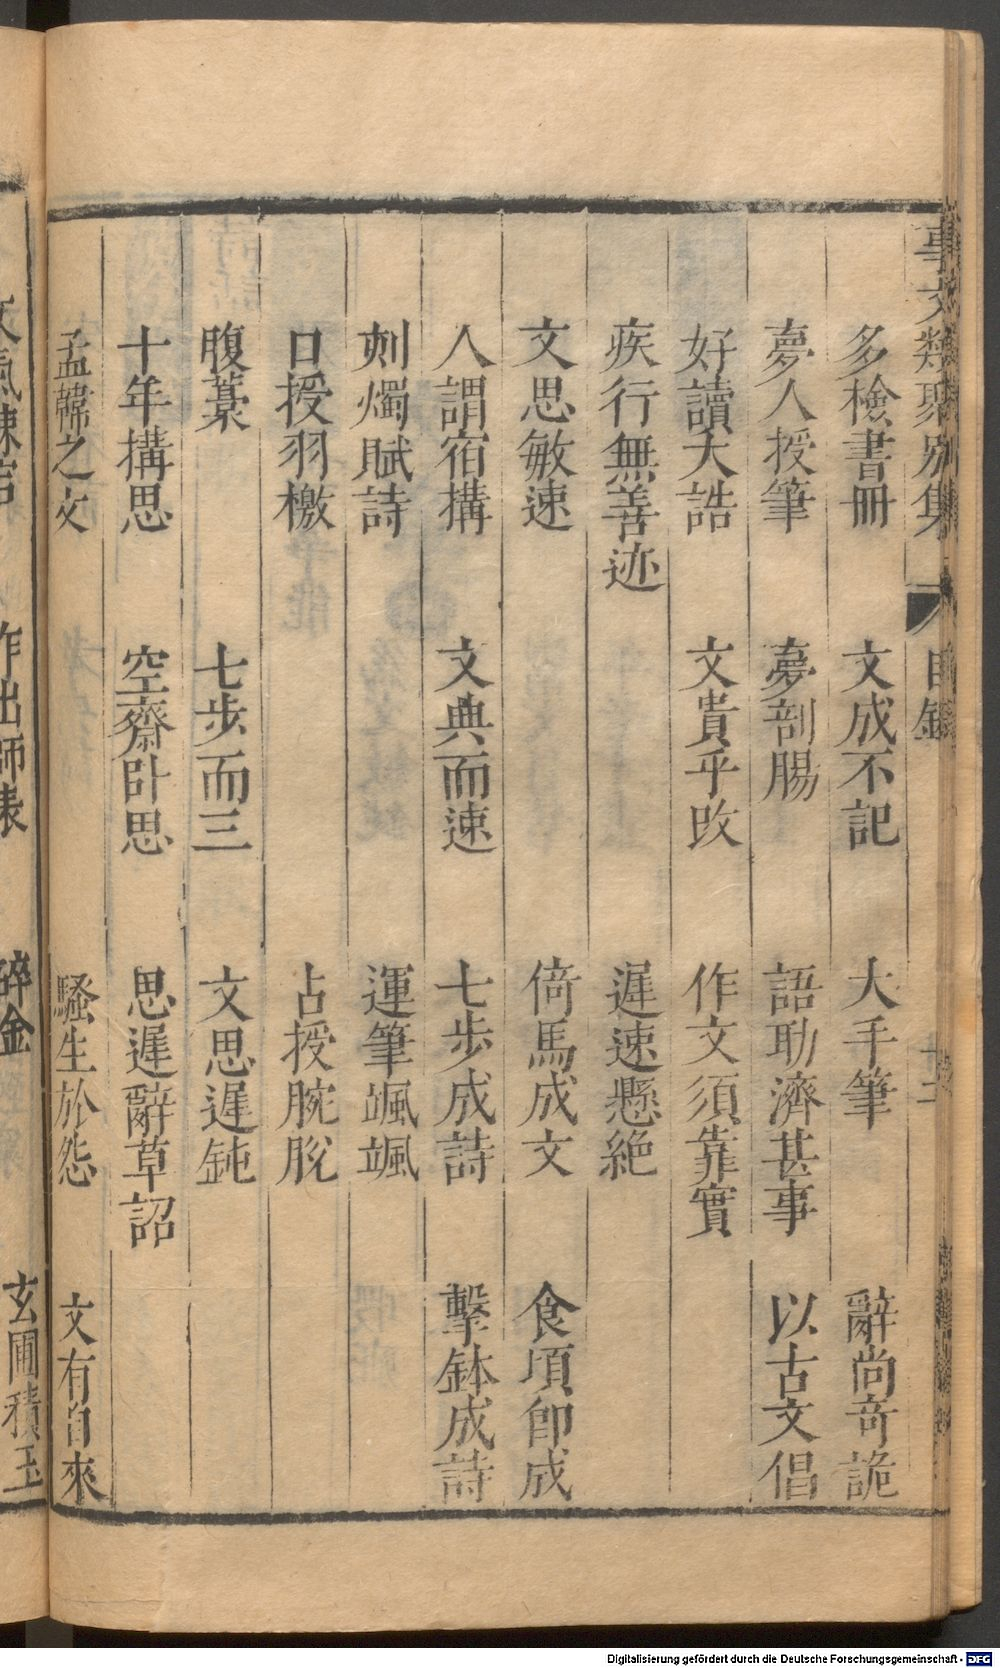 事文類聚別集 目錄 十二
多檢書冊 文成不記 大手筆 辭尚奇詭
夢人授筆 夢剖腸 語助濟甚事 以古文倡
好讀大誥 文貴乎改 作文須靠實
疾行無善迹 遲速懸絶
文思敏速 倚馬成文 食頃即成
人謂宿搆 文典而速 七步成詩 擊鉢成詩
刻燭賦詩 運筆颯颯
口授羽檄 占授腕脫
腹藁 七步而三 文思遲鈍
十年搆思 空齋卧思 思遲辭草詔
孟韓之文 騷生於怨 文有自來
作出師表 碎金 玄圃積玉
Digitalisierung gefördert durch die Deutsche Forschungsgemeinschaft - DFG